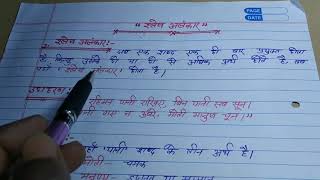 PAGE NO.
DATE
"श्लेष अलंकार"
श्लेष अलंकार:- जब एक शब्द एक ही बार प्रयुक्त होता
है किन्तु उसके दो या दो से अधिक अर्थ होते है, तब
वहाँ "श्लेष अलंकार" होता है।
उदाहरण
रहिमन पानी राखिए, बिन पानी सब सून।
पानी गए न उबरे, मोती मानुष चून॥
पानी शब्द के तीन अर्थ है।
मोती चमक